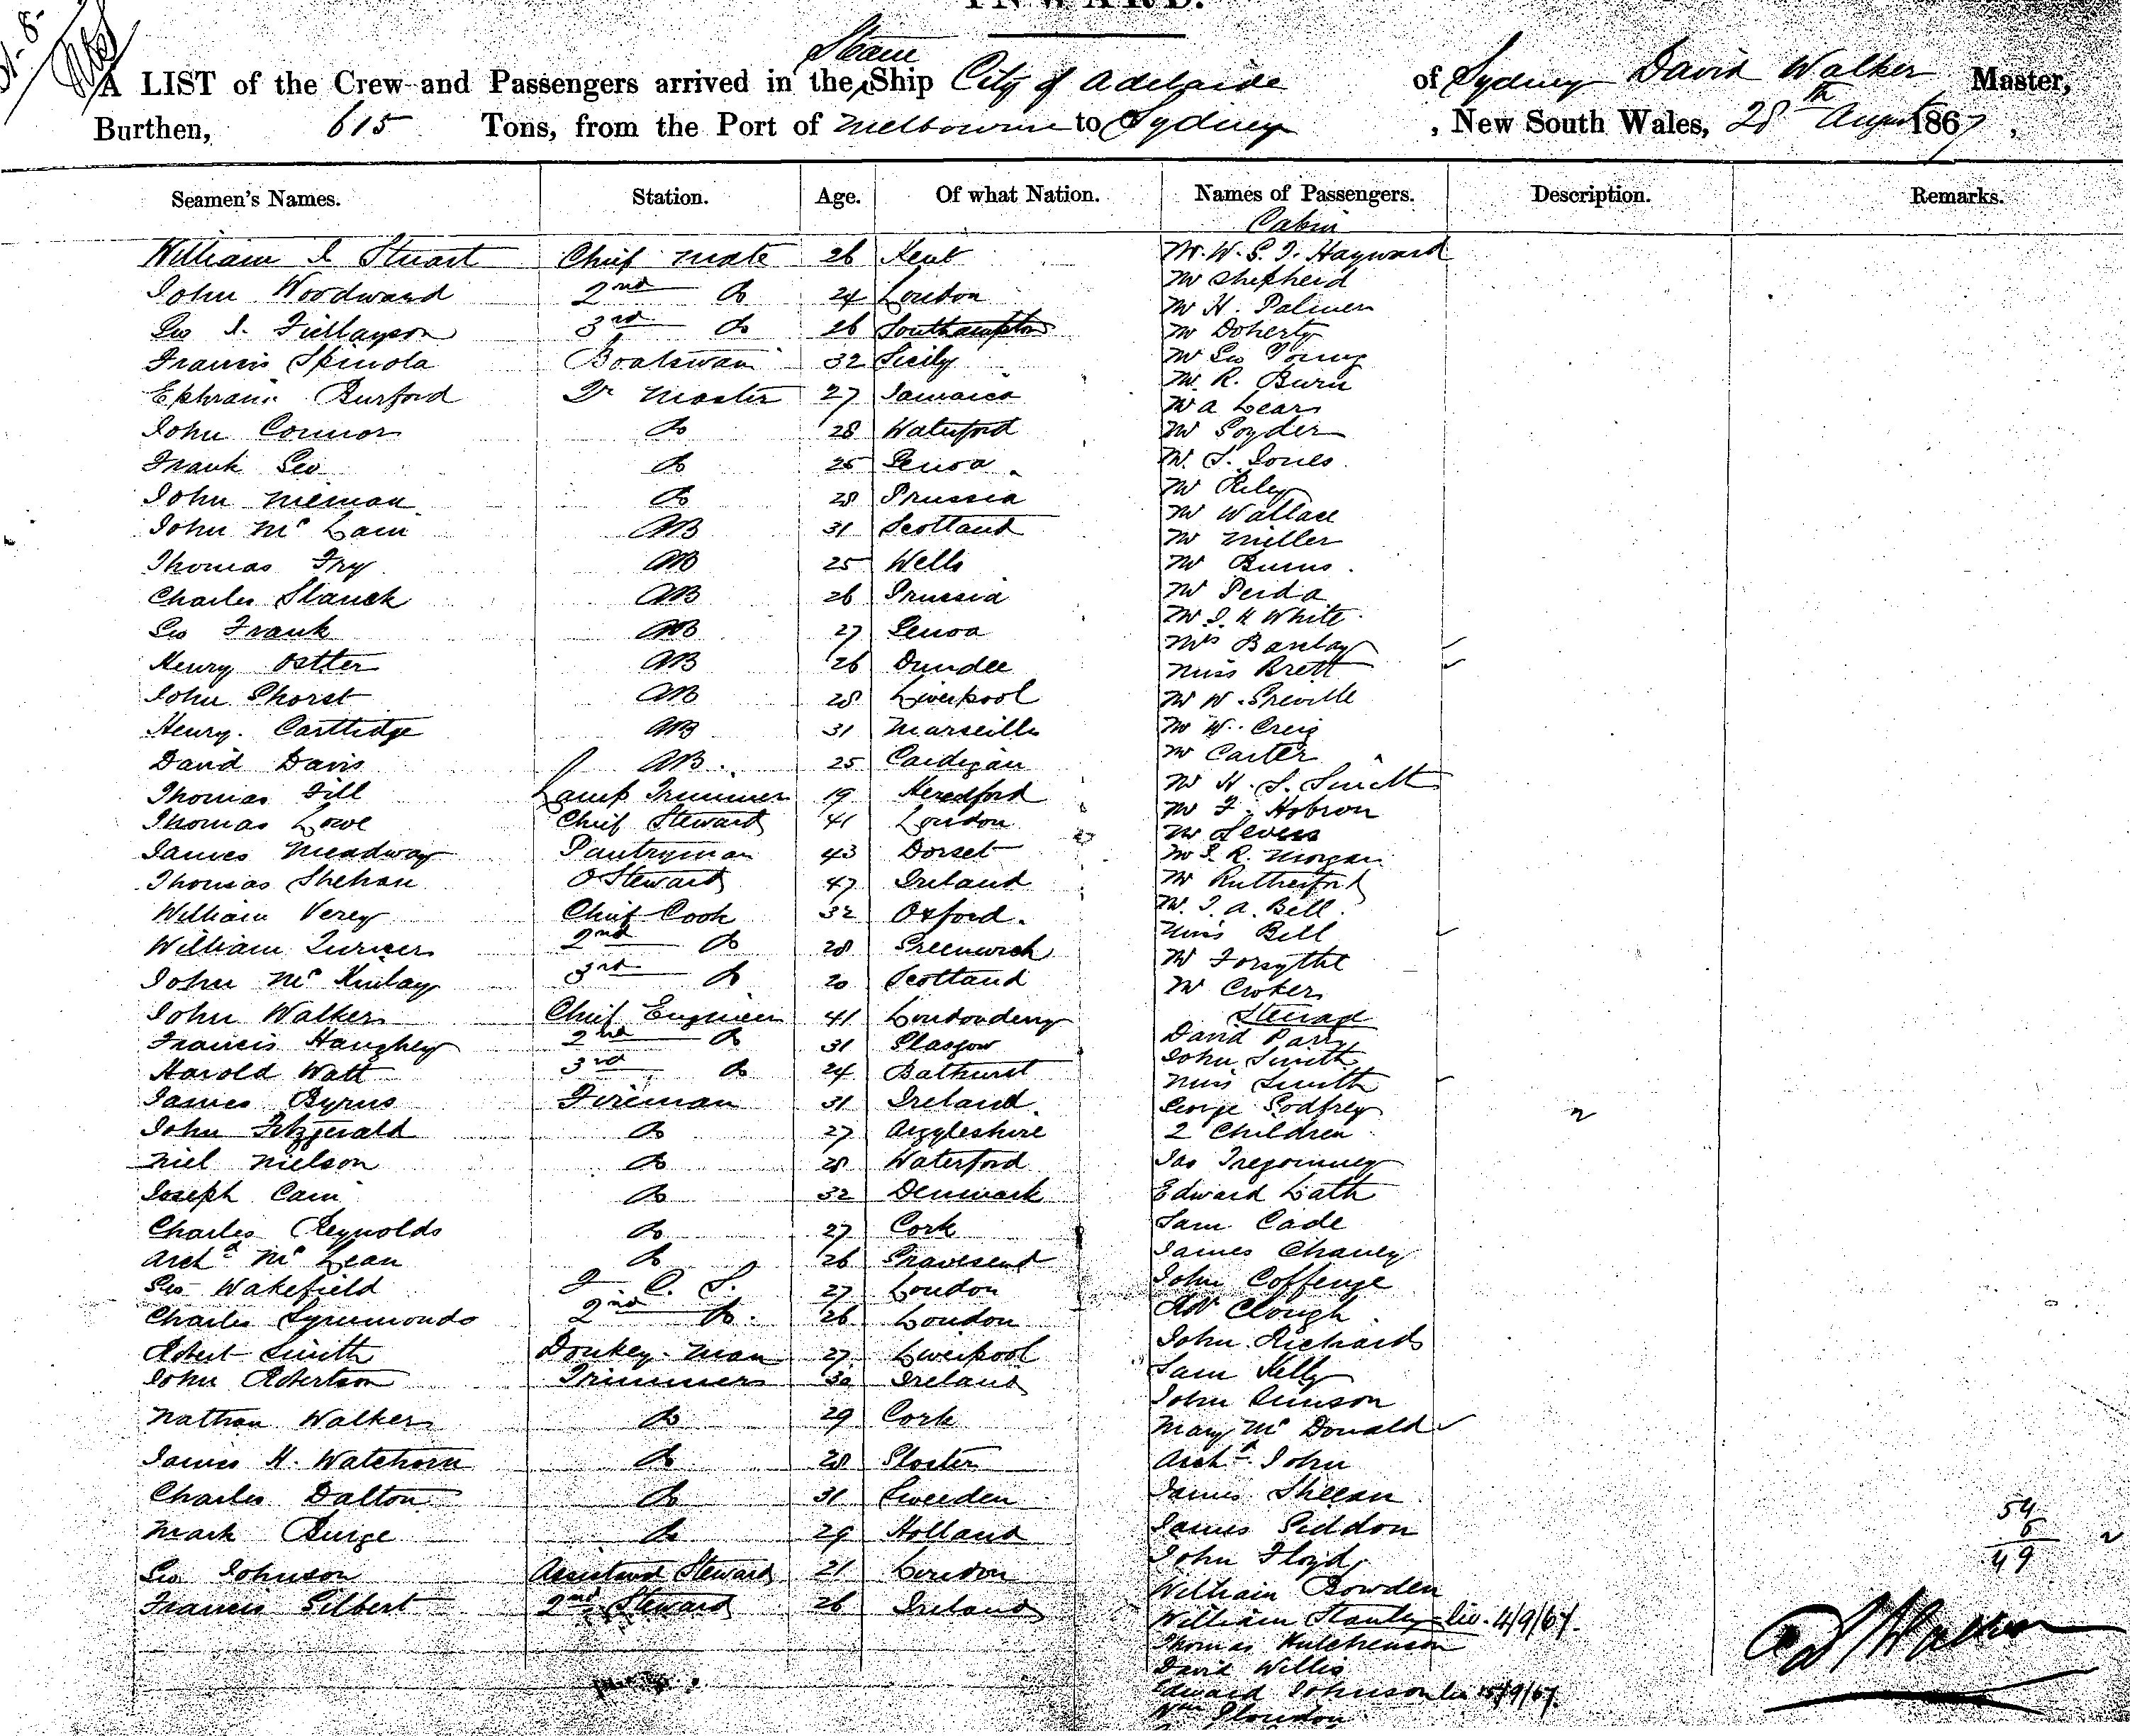 INWARD.
Steam
A LIST of the Crew and Passengers arrived in the Ship City of Adelaide of Sydney David Walker Master,
Burthen, 615 Tons, from the Port of Melbourne to Sydney , New South Wales, 28th August 1867,
Seamen's Names. Station. Age. Of what Nation. Names of Passengers. Description. Remarks.
Cabin
William I Stuart Chief Mate 26 Kent
John Woodward 2nd Do 24 London
Geo I. Finlayson 3rd do 26 Southampton
Francis Spinola Boatswain 32 Sicily
Ephraim Burford Qr Master 27 Jamaica
John Connor Do 28 Waterford
Frank Geo Do 25 Genoa
John Nieman Do 28 Prussia
John Mc Lain AB 31 Scotland
Thomas Fry AB 25 Wells
Charles Slanck AB 26 Prussia
Geo Frank AB 27 Genoa
Henry Ostler AB 26 Dundee
John Shorst AB 28 Liverpool
Henry Carttidge AB 31 Marseille
David Davis AB. 25 Cardigan
Thomas Fill Lamp Trimmer 19 Heredford
Thomas Lowe Chief Steward 41 London
James Meadway Pantryman 43 Dorset
Thomas Shehan O Steward 47 Ireland
William Verey Chief Cook 32 Oxford.
William Turner 2nd Do 28 Greenwich
John Mc Kinlay 3rd do 20 Scotland
John Walker Chief Engineer 41 Londonderry
Francis Haughey 2nd Do 31 Glasgow
Harold Watt 3rd Do 24 Bathurst
James Byrns Fireman 31 Ireland.
John Fitzgerald Do 27 Argyleshire
Niel Nielson Do 28 Waterford
Joseph Cain Do 32 Denmark
Charles Reynolds Do 27 Cork
Archd Mc Lean Do 26 Gravesend
Geo Wakefield F. C. S. 27 London
Charles Symmonds 2nd Do. 26 London
Robert Smith Donkey-Man 27 Liverpool
John Robertson Trimmers 30 Ireland
Nathan Walker Do 29 Cork
James H. Watchorn Do 28 Gloster
Charles Dalton Do 31 Sweeden
Mark Burge Do 29 Holland
Geo Johnson Assistand Steward 21 London
Francis Gilbert 2nd Steward 26 Ireland
Mr. W. S. J. Hayward
Mr Shepherd
Mr H. Palmer
Mr Doherty
Mr Geo Young
Mr. R. Burn
Mr A Lears
Mr Goyder
Mr. S. Jones
Mr Riley
Mr Wallace
Mr Miller
Mr Burns.
Mr Perda
Mr J. H White
Mrs Barclay
Miss Brett
Mr W. Greville
Mr W. Creig
Mr Carter
Mr H. S. Smith
Mr F. Hobson
Mr Severs
Mr J. R. Morgan
Mr Rutherford
Mr. J. A. Bell.
Miss Bell
Mr Forsythe
Mr Croker
Steerage
David Parry
John Smith
Miss Smith
George Godfrey
2 Children
Jas Tregonney
Edward Lath
Sam Cade
James Chaney
John Coffenge
Clough
John Richards
Sam Kelly
John Simson
Mary Mc Donald
Archd John
James Sheean
James Seddon
John Floyd
William Bowden
William Stanley liv. 4/9/67.
Thomas Hutchenson
David Willis
Edward Johnson liv 15/9/67.
54
49